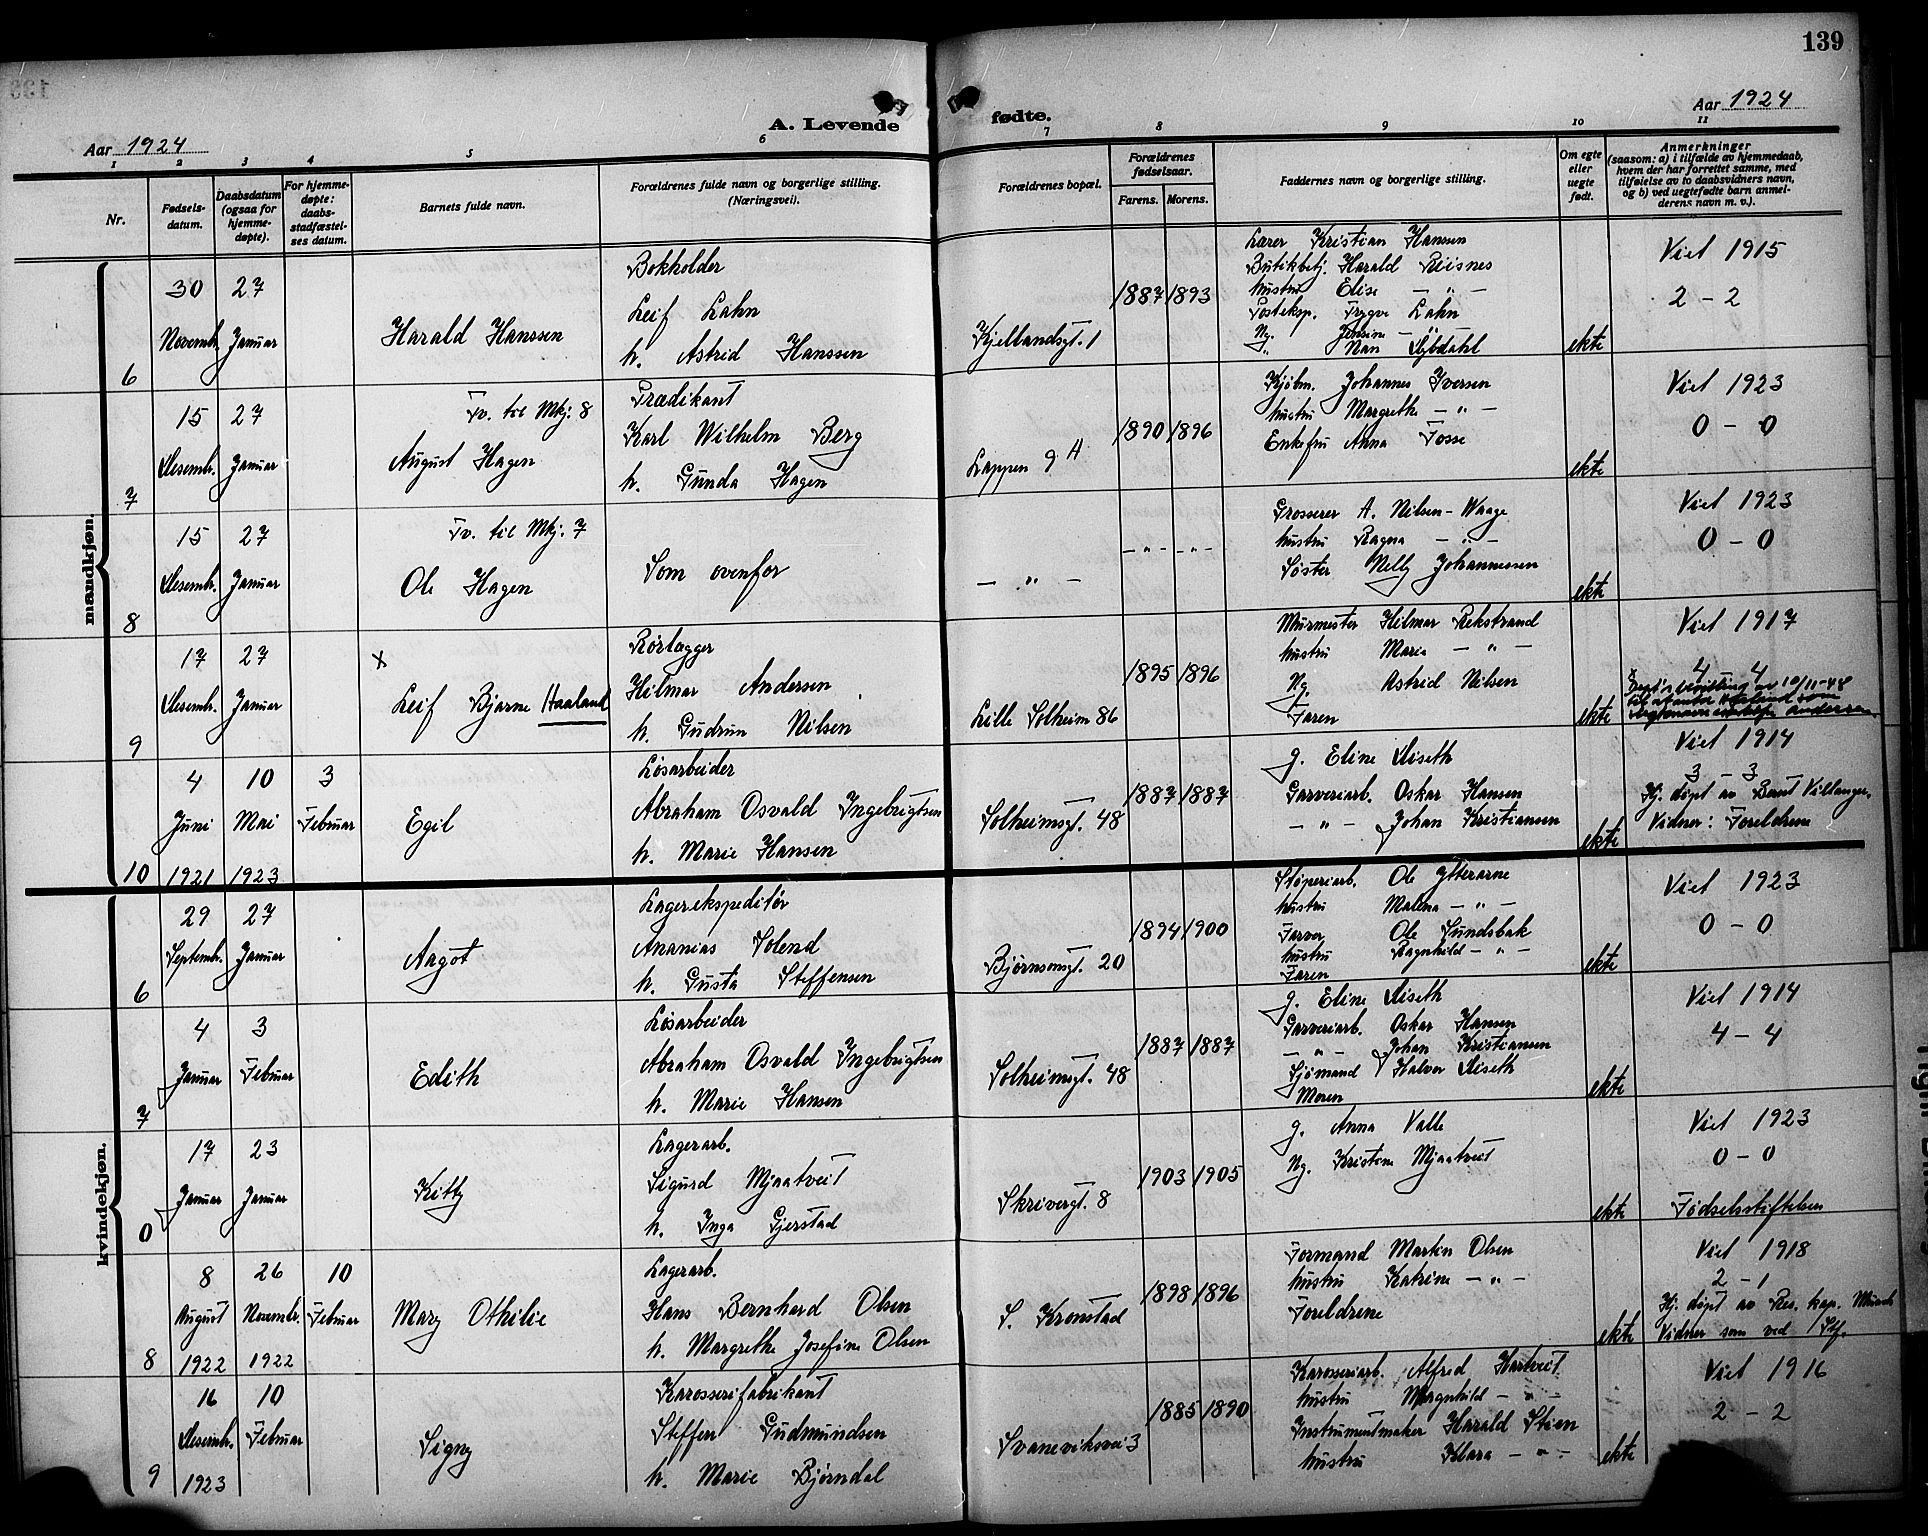 139
Aar 1924
A. Levende
fødte.
Aar 1924
1 2 3 4 5 6 7 8 9 10 11
Nr.
Fødsels-
datum.
Daabsdatum
(ogsaa for
hjemme-
døpte).
For hjemme-
døpte:
daabs-
stadfæstel-
ses datum.
Barnets fulde navn.
Forældrenes fulde navn og borgerlige stilling.
(Næringsvei).
Forældrenes bopæl.
Forældrenes
fødselsaar.
Farens. Morens.
Faddernes navn og borgerlige stilling.
Om egte
eller
uegte
født.
Anmerkninger
(saasom: a) i tilfælde av hjemmedaab,
hvem der har forrettet samme, med
tilføielse av to daabsvidners navn,
og b) ved uegtefødte barn anmel-
derens navn m. v.).
mandkjøn.
6
30
Novembr.
27
Januar
Harald Hanssen
Bokholder
Leif Lahn
h. Astrid Hanssen
Kjellandsgt. 1
1887 1893
Lærer Kristian Hansen
Butikbetj. Harald Risnes
hustru Elise - " -
Posteksp. Trygve Lahn
Ng. Jensine -
" Nan Sybdahl
ekte
Viet 1915
2 - 2
7
15
Desembr.
27
Januar
Tv. til Mkj: 8
August Hagen
Prædikant
Karl Wilhelm Berg
h. Gunda Hagen
Lappen 9 A
1890 1896
Kjøbm. Johannes Iversen
hustru Margrethe - " -
Enkefru Anna Fosse
ekte
Viet 1923
0 - 0
8
15
Desembr.
27
Januar
Tv. til Mkj: 7
Ole Hagen
Som ovenfor
- " -
- " - - " -
Grosserer A. Nilsen - Waage
hustru Ragna - " -
Søster Nelly Johannessen
ekte
Viet 1923
0 - 0
9
17
Desembr.
27
Januar
x
Leif Bjarne Haaland
Rørlægger
Hilmar Andersen
h. Gudrun Nilsen
Lille Solheim 86
1895 1896
Murmester Hilmar Rekstrand
hustru Marie - " -
Ng. Astrid Nilsen
Faren
ekte
Viet 1917
4 - 4
10
4
Juni
1921
10
Mai
1923
3
Februar
Egil
Løsarbeider
Abraham Osvald Ingebrigtsen
h. Marie Hansen
Solheimsgt. 48
1887 1887
g. Eline Liseth
Garveriarb. Oskar Hansen
- " - Johan Kristiansen
ekte
Viet 1914
3 - 3
Hj. døpt av Berut Villanger.
Vidner: Foreldrene
kvindekjøn.
6
29
Septembr.
27
Januar
Aagot
Lagerekspeditør
Ananias Solend
h. Gusta Steffensen
Bjørnsonsgt. 20
1894 1900
Støperiarb. Ole Ytterarne
hustru Malena - " -
Farver Ole Sundsbak
hustru Ragnhild - " -
Faren
ekte
Viet 1923
0 - 0
7
4
Januar
3
Februar
Edith
Løsarbeider
Abraham Osvald Ingebrigtsen
h. Marie Hansen
Solheimsgt. 48
1887 1887
g. Eline Liseth
Garveriarb. Oskar Hansen
- " - Johan Kristiansen
Sjømand Halvor Liseth
Moren
ekte
Viet 1914
4 - 4
0
17
Januar
23
Januar
Kitty
Lagerarb.
Sigurd Mjaatveit
h. Inga Gjerstad
Skrivergt. 8
1903 1905
g. Anna Valle
Ng. Kristine Mjaatveit
ekte
Viet 1923
0 - 0
Fødselsstiftelsen
8
8
August
1922
26
Novembr.
1922
10
Februar
Mary Othilie
Lagerarb.
Hans Bernhard Olsen
h. Margrethe Josefine Olsen
S. Kronstad
1898 1896
Formand Martin Olsen
hustru Katrine - " -
Foreldrene
ekte
Viet 1918
2 - 1
Hj. døpt av Res. kap. Munch
Vidner som ved Stf.
9
16
Desembr.
1923
10
Februar
Signy
Karosserifabrikant
Steffen Gudmundsen
h. Marie Bjørndal
Svaneviksvei 3
1885 1890
Karosseriarb. Alfred Hartveit
hustru Magnhild - " -
Instrumentmaker Harald Stien
hustru Klara - " -
ekte
Viet 1916
2 - 2